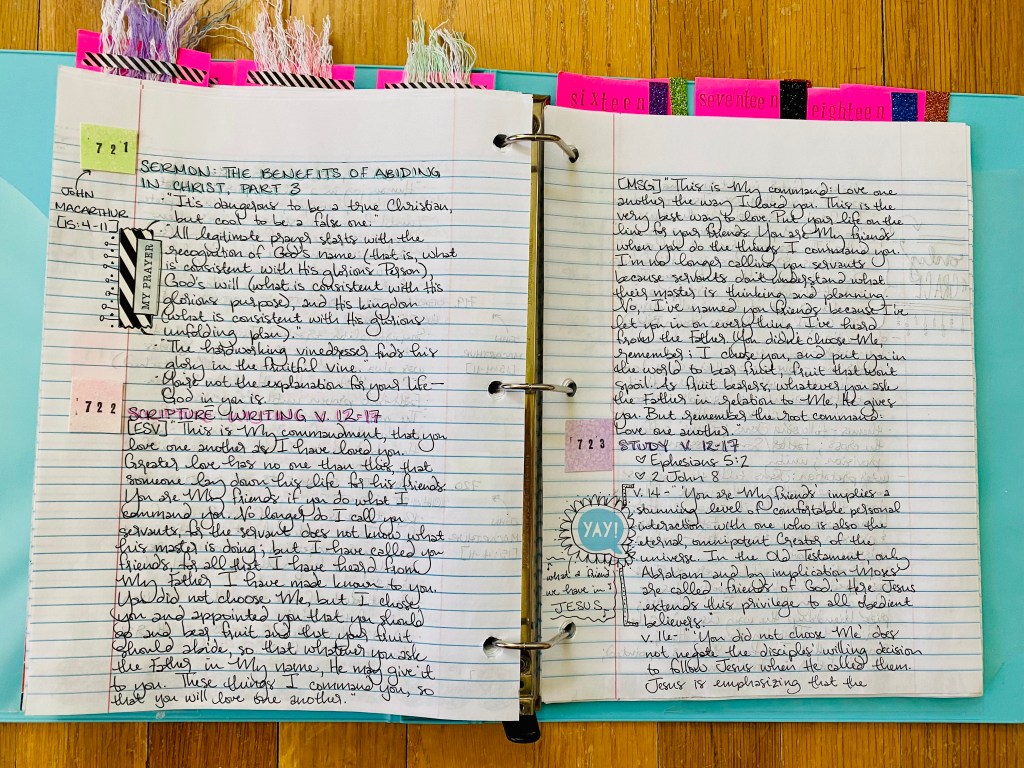 sixteen
seventeen
eighteen
721
JOHN
MACARTHUR
[15:4-11]
SERMON: THE BENEFITS OF ABIDING
IN CHRIST, PART 3
"It's dangerous to be a true Christian,
but cool to be a false one."
"All legitimate prayer starts with the
recognition of God's name (that is, what
is consistent with His glorious Person),
God's will (what is consistent with His
glorious purpose), and His kingdom
(what is consistent with His glorious
unfolding plan)."
MY PRAYER
"The hardworking vinedresser finds his
glory in the fruitful vine."
not the explanation for your life—
God in you is.
722
SCRIPTURE WRITING V. 12-17
[ESV] "This is My commandment, that you
love one another as I have loved you.
Greater love has no one than this that
someone lay down his life for his friends.
You are My friends if you do what I
command you. No longer do I call you
servants, for the servant does not know what
his master is doing; but I have called you
friends, for all that I have heard from
My Father I have made known to you.
You did not choose Me, but I chose
you and appointed you that you should
go and bear fruit and that your fruit
should abide, so that whatever you ask
the Father in My name, He may give it
to you. These things I command you, so
that you will love one another."
[MSG] "This is My command: Love one
another the way I loved you. This is the
very best way to love. Put your life on the
line for your friends. You are My friends
when you do the things I command you.
I'm no longer calling you servants
because servants don't understand what
their master is thinking and planning.
No, I've named you friends because I've
let you in on everything I've heard
from the Father. You didn't choose Me,
remember; I chose you, and put you in
the world to bear fruit, fruit that won't
spoil. As fruit bearers, whatever you ask
the Father in relation to Me, He gives
you. But remember the root command:
Love one another."
723
STUDY V. 12-17
♡ Ephesians 5:2
♡ 2 John 8
V. 14- "'You are My friends' implies a
stunning level of comfortable personal
interaction with one who is also the
eternal, omnipotent Creator of the
universe. In the Old Testament, only
Abraham and by implication Moses
are called 'friends of God'; Here Jesus
extends this privilege to all obedient
believers."
YAY!
what a friend
we have in
JESUS
V. 16- "'You did not choose Me' does
not negate the disciples' willing decision
to follow Jesus when He called them.
Jesus is emphasizing that the